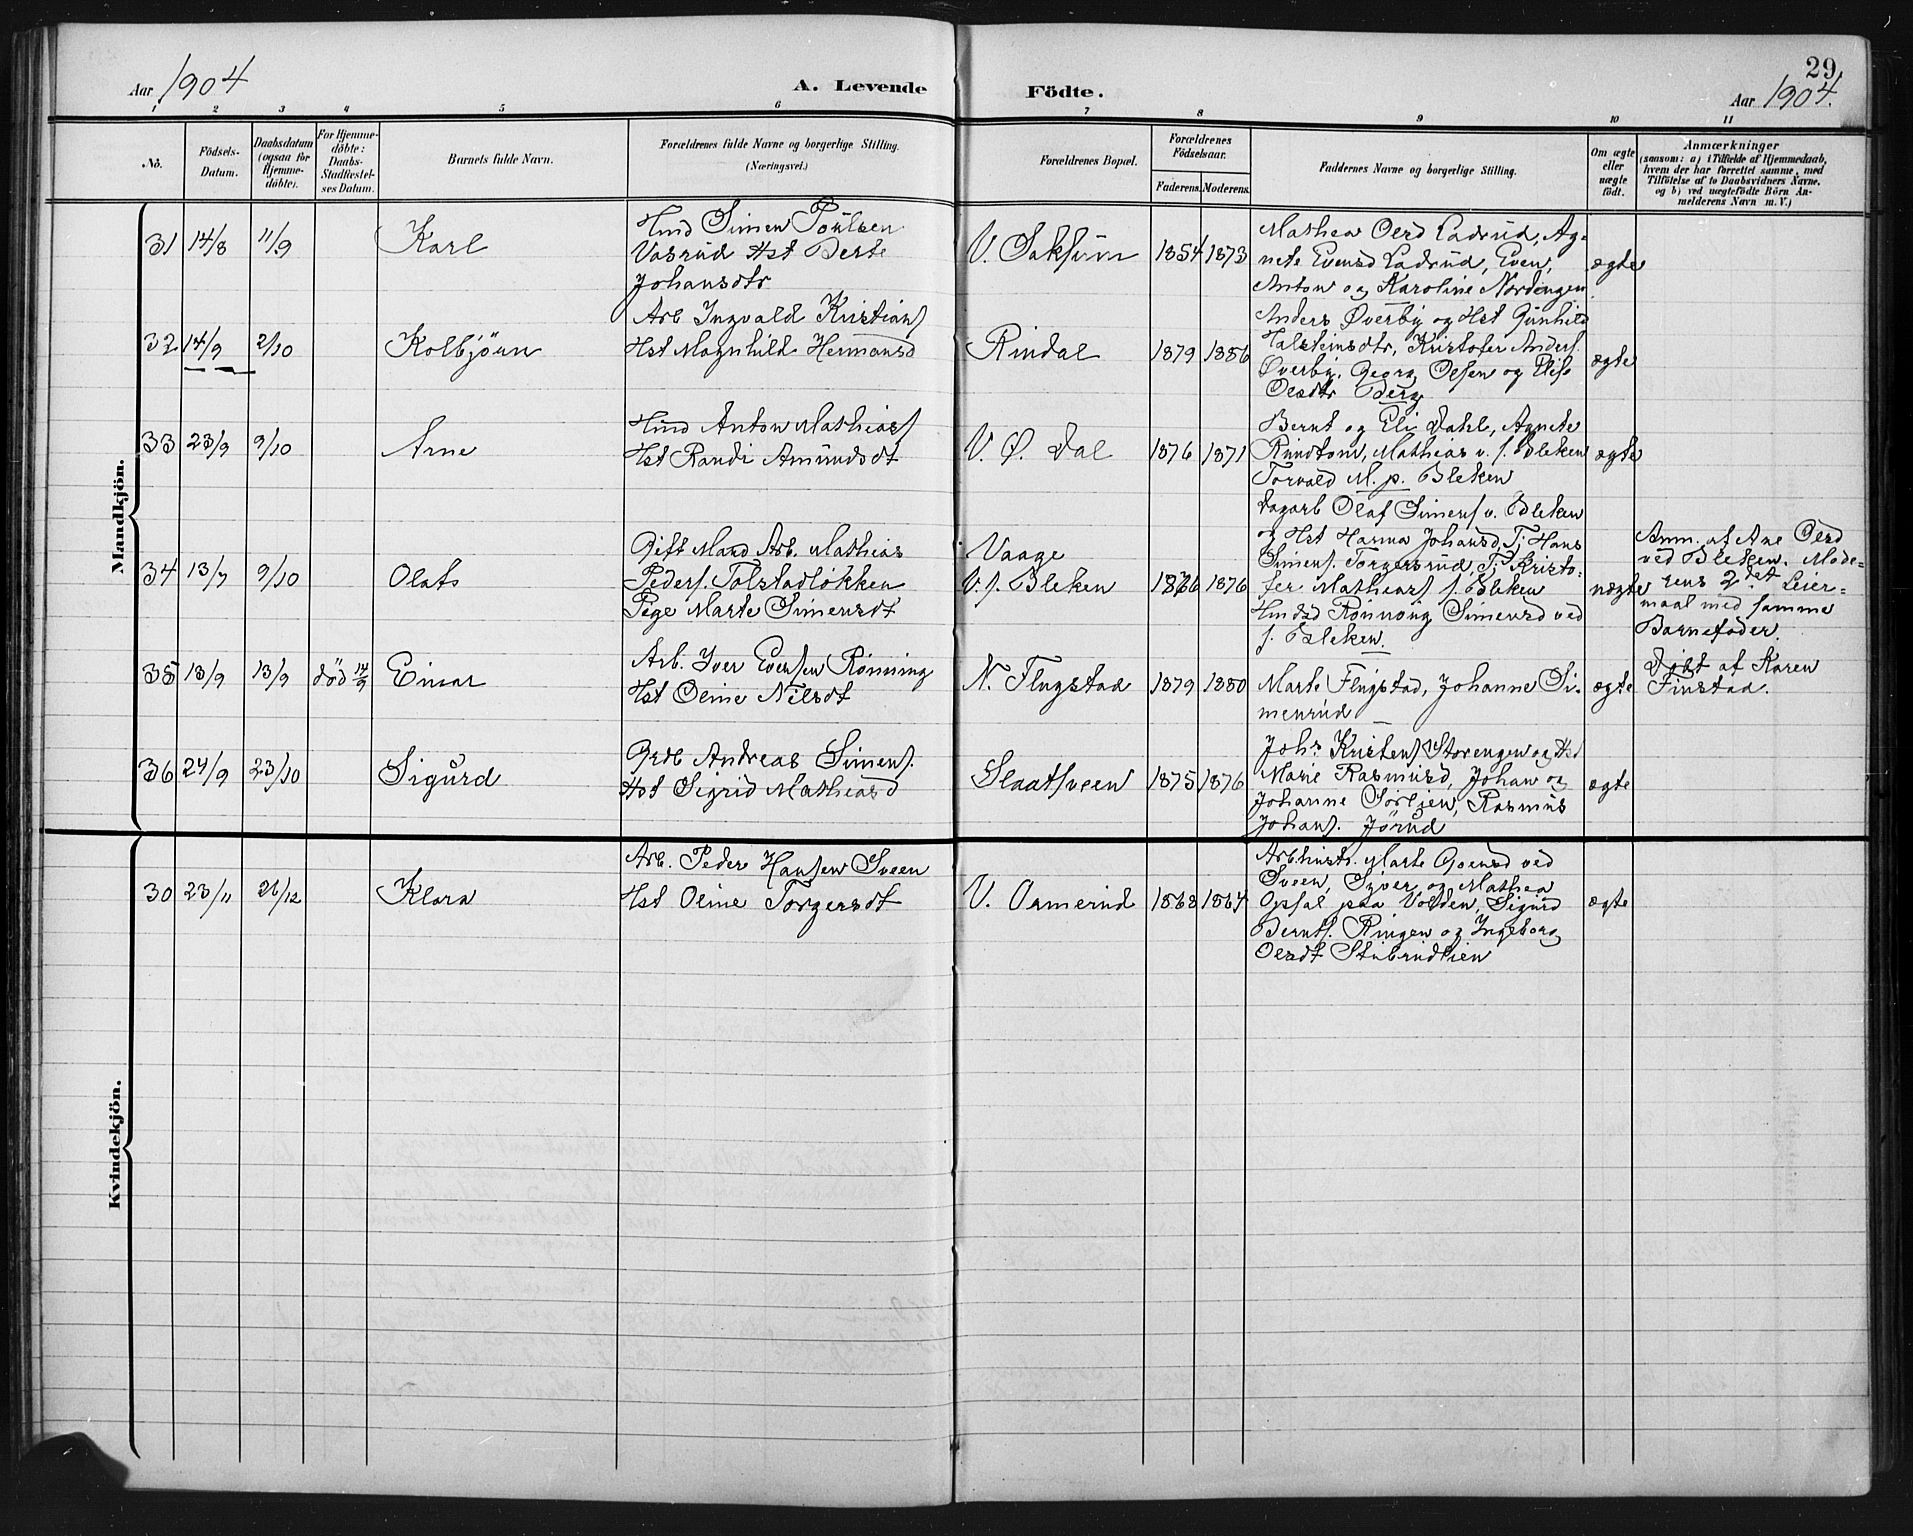 29
Aar 1904
A. Levende Födte.
Aar 1904.
1 2 3 4 5 6 7 8 9 10 11
No.
Födsels-
Datum.
Daabsdatum
(ogsaa for
Hjemme-
döbte).
For Hjemme-
döbte:
Daabs-
Stadfæstel-
ses Datum.
Barnets fulde Navn.
Forældrenes fulde Navne og borgerlige Stilling.
(Næringsvei.)
Forældrenes Bopæl.
Forældrenes
Födselsaar.
Faderens. Moderens.
Faddernes Navne og borgerlige Stilling.
Om ægte
eller
uægte
födt.
Anmærkninger
(saasom: a) i Tilfælde af Hjemmedaab,
hvem der har forrettet samme, med
Tilföielse af to Daabsvidners Navne,
og b) ved uægtefödte Börn An-
melderens Navn m. V.)
Mandkjön.
31 14/8 11/9
Karl
Hmd Simen Poulsen
Vasrud Hst Berte
Johansdtr
V. Saksum
1854 1873
Mathea Olsd Ladrud, Ag-
nete Evensd Ladrud, Even,
Anton og Karoline Nordengen
ægte
32 14/9 2/10
Kolbjörn
Arb Ingvald Kristians
Hst Magnhild Hermansd
Rindal
1879 1886
Anders Øverby og Hst Gunhild
Halsteinsdtr, Kristofer Anders.
Øverby, Georg Olsen og Elise
Olsdtr Berg
ægte
33 23/9 9/10
Arne
Hmd Anton Mathias
Hst Randi Amundsdt
V. Ø. Dal
1876 1871
Bernt og Eli Dahl, Agnete
Rundtom, Mathias v. s. Bleken
Torvald M. p. Bleken
ægte
34 13/7 9/10
Olaf
Gift Mand Arb. Mathias
Peders. Tolstadløkken
Pige Marte Simensdt
Vaage
V. s. Bleken
1866 1876
Dagarb Olaf Simens v. Bleken
og Hst Hanna Johansd Tj Hans
Simens. Torgersrud, Tj Kristo-
fer Mathias s. Bleken
Hmdsd Rønnoug Simensd ved
s. Bleken.
uægte
Anm. af Ane Olsd
ved Bleken. Mode-
rens 2det Leier-
maal med samme
Barnefader.
35 13/9 13/9 död 14/9
Einar
Arb. Iver Evensen Rønning
Hst Oline Nilsdt
N. Flugstad
1879 1880
Marte Flugstad, Johanne Si-
menrud
ægte
Døbt af Karen
Finstad.
36 24/9 23/10
Sigurd
Grdb Andreas Simens.
Hst Sigrid Mathiasd
Slaatsveen
1875 1876
Johs Kristens Storengen og Hst
Marie Rasmusd, Johan og
Johanne Sörlien, Rasmus
Johans. Jörud
ægte
Kvindekjön.
30 23/11 26/12
Klara
Arb. Peder Hansen Sveen
Hst Oline Torgersdt
V. Ormerud
1868 1864
Arbhustr. Marte Goensd ved
Sveen, Syver og Mathea
Opsal paa Volden, Sigurd
Bernts. Ringen og Ingeborg
Olsdt Stubrudlien
ægte